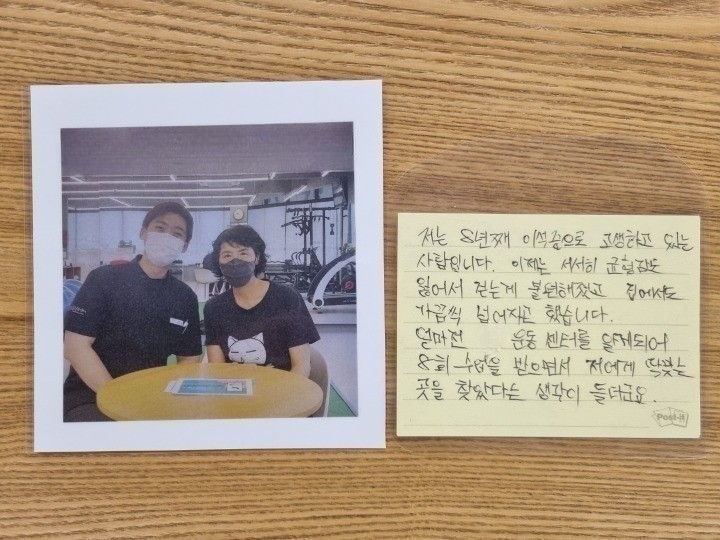 저는 8년째 이석증으로 고생하고 있는
사람입니다. 이제는 서서히 균형감도
잃어서 걷는게 불편해졌고 집에서도
가끔씩 넘어지곤 했습니다.
얼마전 운동 센터를 알게되어
8회 수업을 받으면서 저에게 딱맞는
곳을 찾았다는 생각이 들더군요.
Post-it